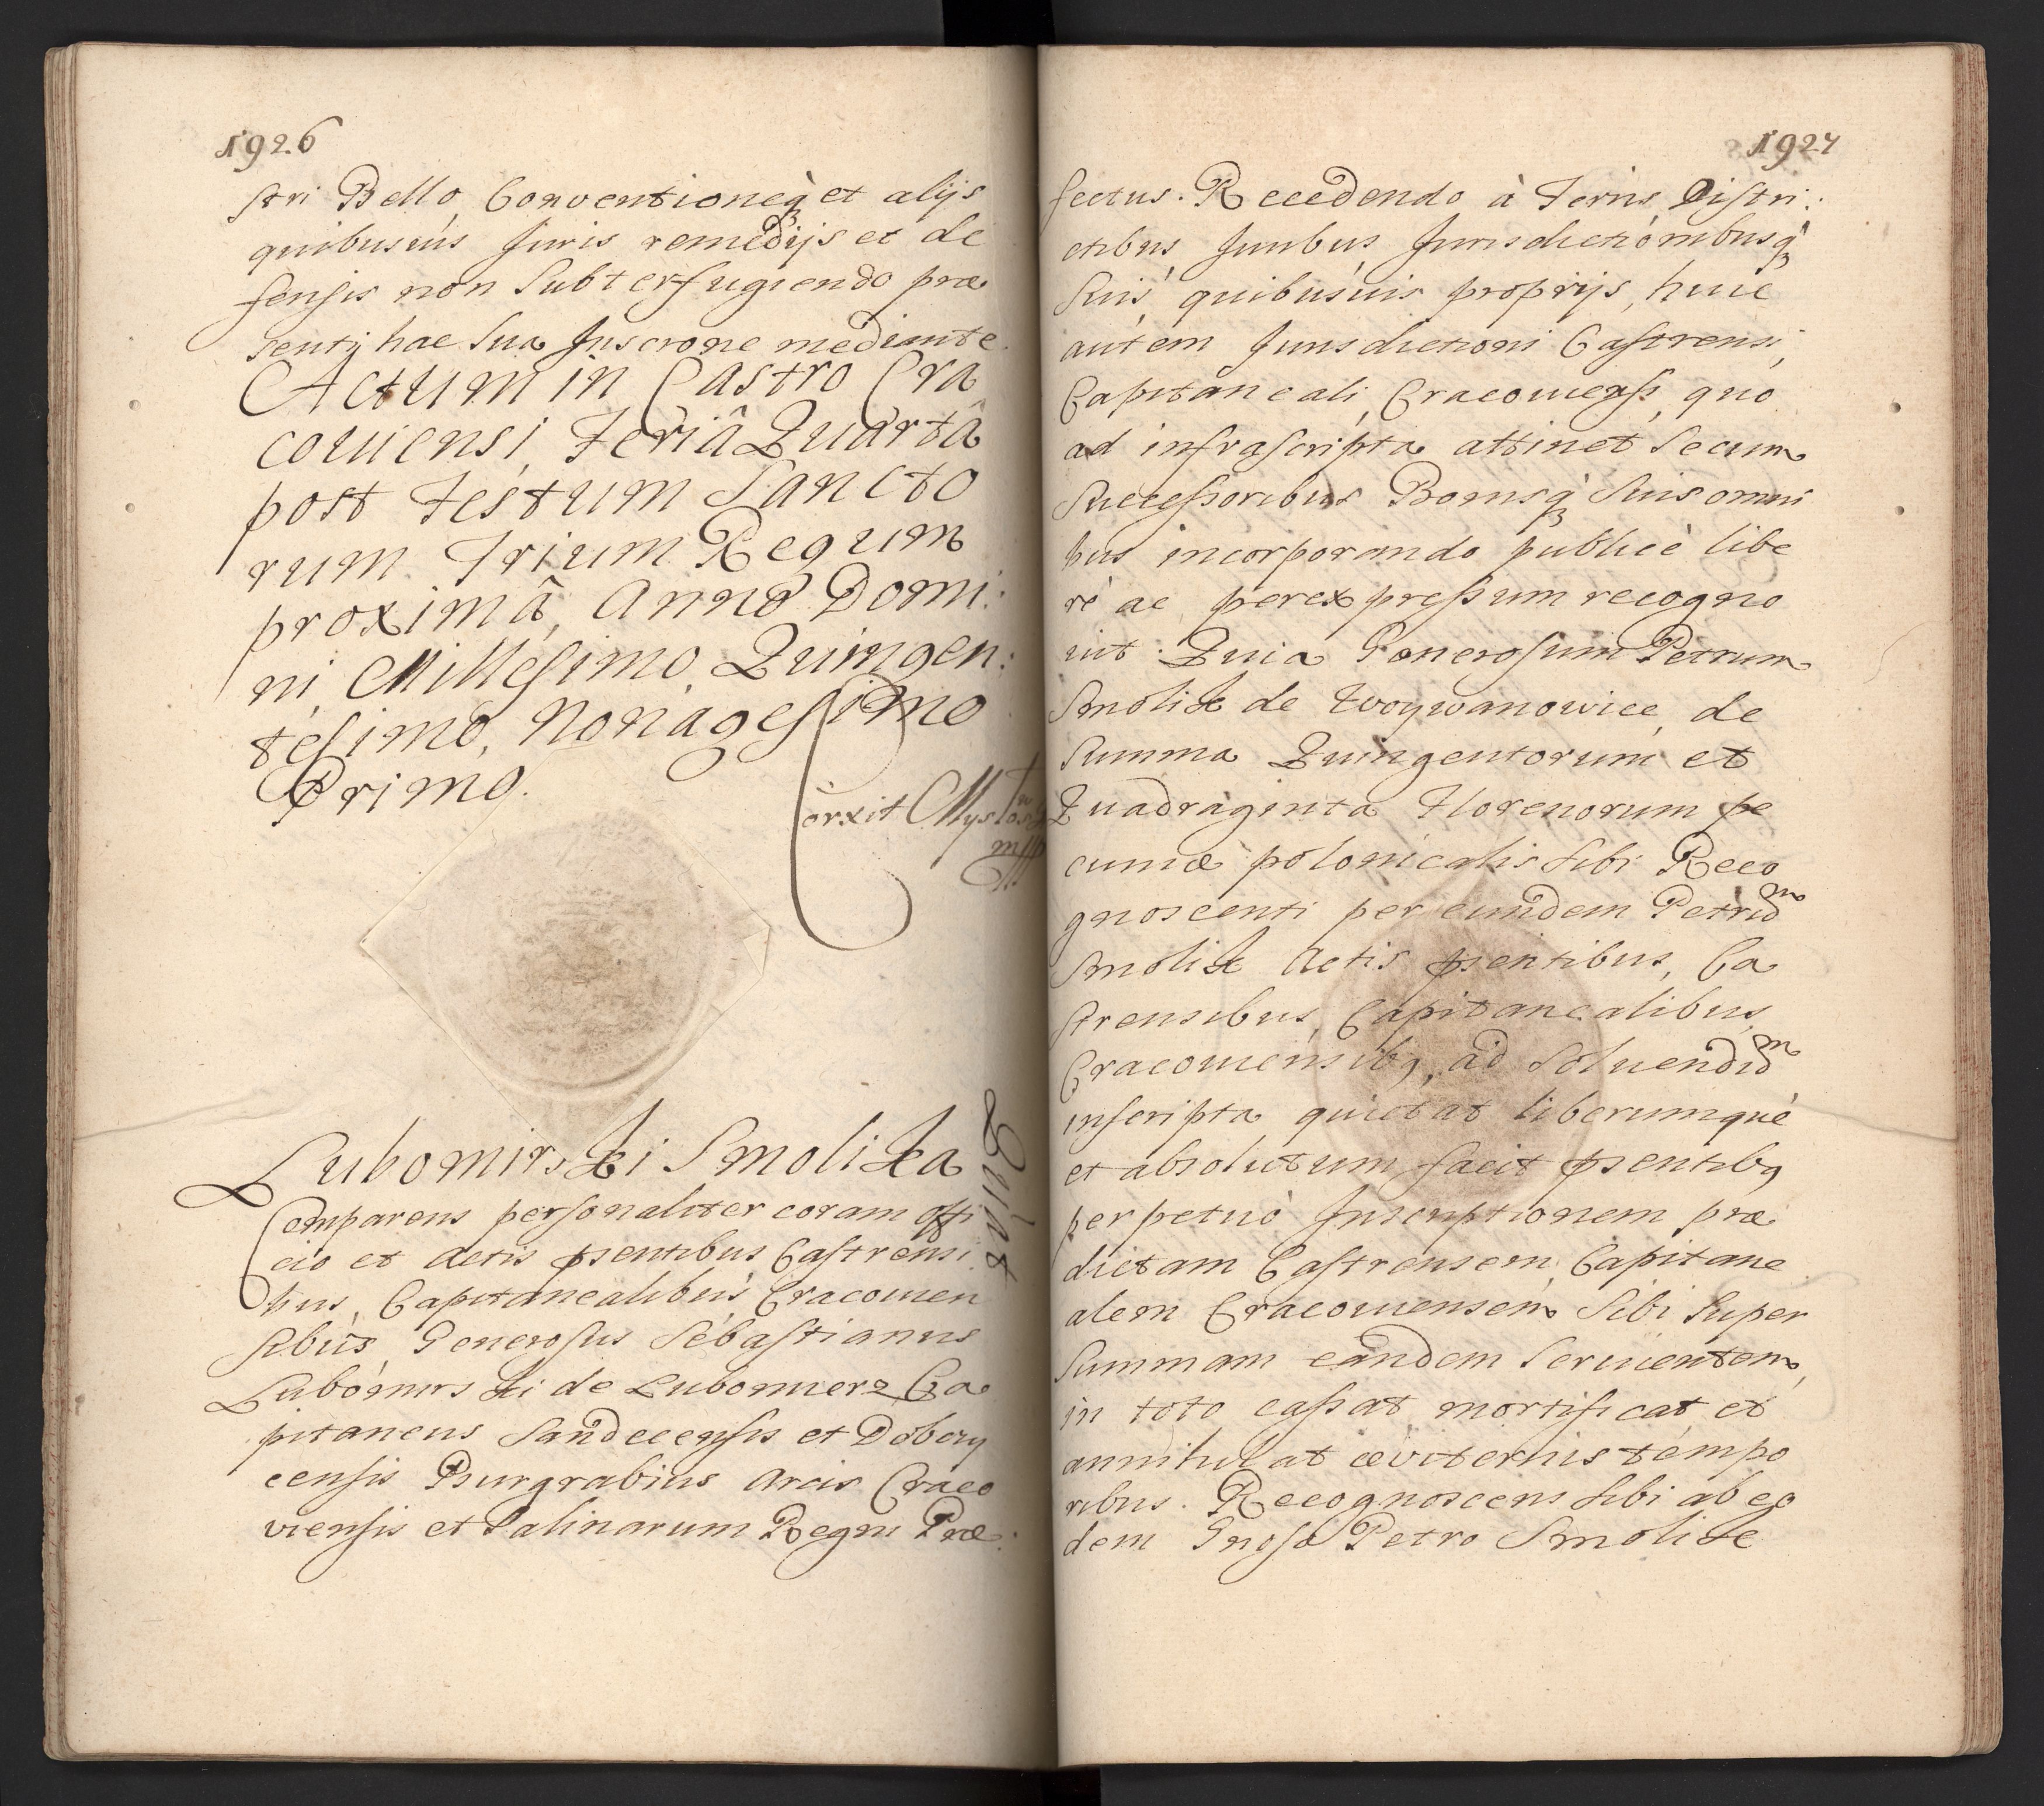 1926
stri Bello, Conventioneq₃ et alijs
quibusuis Juris remedijs et de
fensis non Subterfugiendo præ
senti hac Sua Inscrone mediante.
Actum in Castro Cra
couiensi, Feriâ Quartâ
post Festum Sancto
rum Trium Regum
proximâ, Anno Domi:
ni Millesimo, Quingen:
tesimo, Nonagesimo
Primo.
Corxit
mpp
Lubomirski Smolika
Quitat
Comparens personaliter coram offi
cio et Actis psentibus Castrensi
bus, Capitanealibus Cracouien
sibus Generosus Sebastianus
Lubomirski de Lubomierz Ca
pitaneus Sandecensis et Dobczy
censis Burgrabius Arcis Craco
viensis et Salinarum Regni Præ:
1927
fectus. Recedendo à Terris, Distri:
ctibus, Juribus, Jurisdictionibusq₃
Suis, quibusuis proprijs, huic
autem Jurisdictioni Castrensi,
Capitaneali, Cracouiensi, quo
ad infrascripta attinet Se cum
Successoribus Bonisq₃ Suis omni
bus incorporando publicè libe
rè ac per expressum recogno
uit. Quia Generosum Petrum
Smolik de Iwoywanowice, de
Summa Quingentorum et
Quadraginta Florenorum pe
cuniæ polonicalis Sibi Reco
gnoscenti per eundem Petrũm
Smolik Actis psentibus, Ca
strensibus, Capitanealibus,
Cracouiensibq, ad Soluendũm
inscripta quietat liberumquè
et absolutum facit psentibq
perpetuò Inscriptionem præ
dictam Castrensem, Capitane
alem Cracouiensem Sibi Super
Summam eandem Seruientem,
in toto cassat mortificat et
annihilat æviternis tempo
ribus. Recognoscens Sibi ab eo
dem Gnoso Petro Smolik